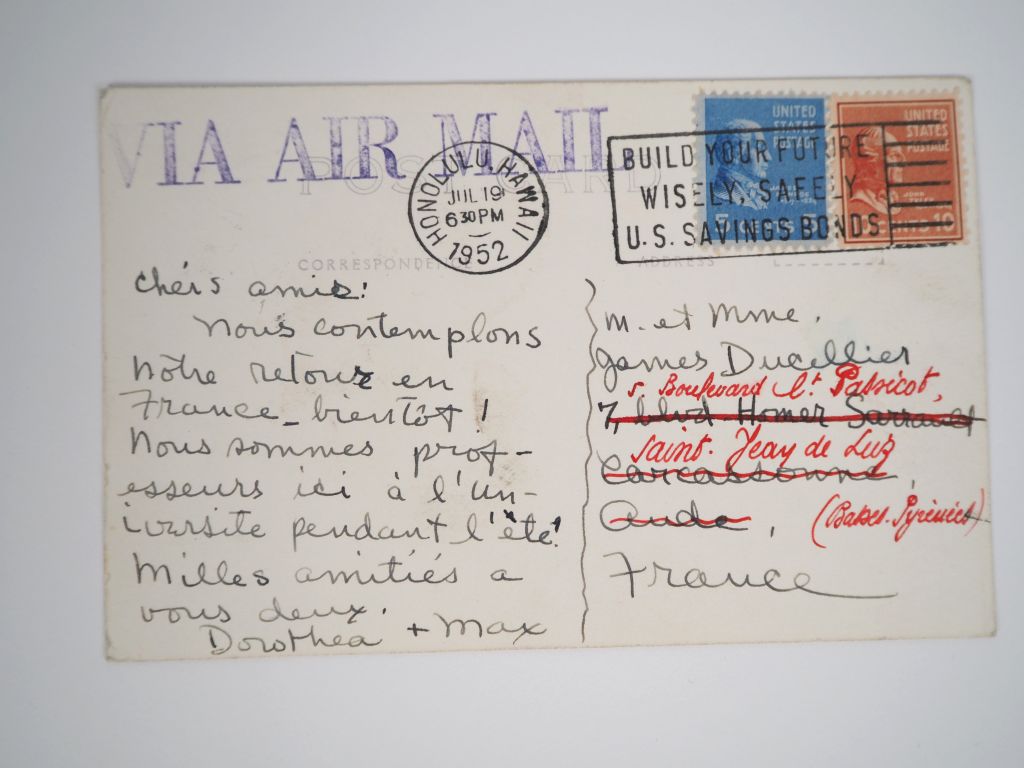 VIA AIR MAIL
POST CARD
HONOLULU, HAWAII
JUL 19
6 30 PM
1952
BUILD YOUR FUTURE
WISELY, SAFELY
U.S. SAVINGS BONDS
UNITED
STATES
POSTAGE
UNITED
STATES
POSTAGE
JOHN
10
CORRESPONDENCE
ADDRESS
Chers amis:
Nous contemplons
notre retour en
France bientôt!
Nous sommes prof-
esseurs ici à l'un-
iversite pendant l'été!
Milles amitiés a
vous deux.
Dorothea + Max
M. et Mme.
James Ducellier
5. Boulevard
7, blvd. Homer
Saint. Jean de Luz
Carcassonne,
Aude,
(Basses-Pyrénées)
France